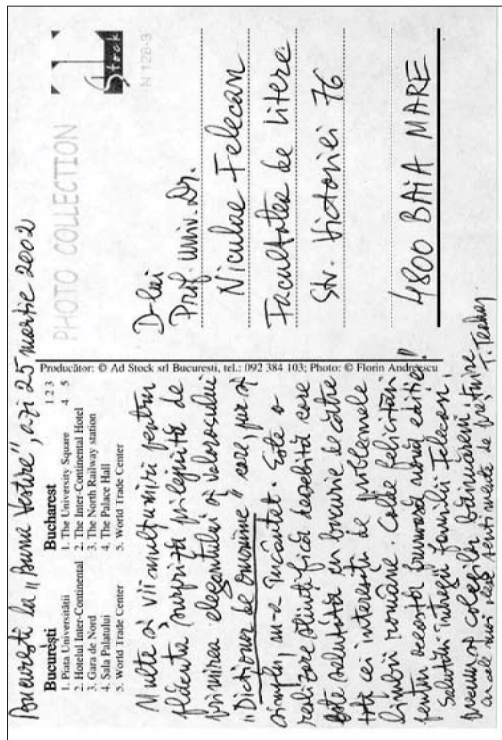 București la „Buna Vestire", azi 25 martie 2002
București
1. Piata Universității
2. Hotelul Inter-Continental
3. Gara de Nord
4. Sala Palatului
5. World Trade Center
Bucharest
1. The University Square
2. The Inter-Continental Hotel
3. The North Railway station
4. The Palace Hall
5. World Trade Center
1 2 3
4 5
Multe și vii mulțumiri pentru
plăcuta surpriză prilejuită de
primirea elegantului și valorosului
„Dicționar de omonime", care, pur și
simplu m-a încântat. Este o
realizare științifică deosebită care
este salutată cu bucurie de către
toți cei interesați de problemele
limbii române. Calde felicitări
pentru această frumoasă nouă ediție!
Salutări întregii familii Telecan
precum și colegilor băimăreni,
cu cele mai alese sentimente de prețuire
Producător: © Ad Stock srl Bucuresti, tel.: 092 384 103; Photo: © Florin Andreescu
PHOTO COLLECTION
Stock
N 128-3
D-lui
Prof. Univ. Dr.
Nicolae Felecan
Facultatea de Litere
Str. Victoriei 76
4800 BAIA MARE